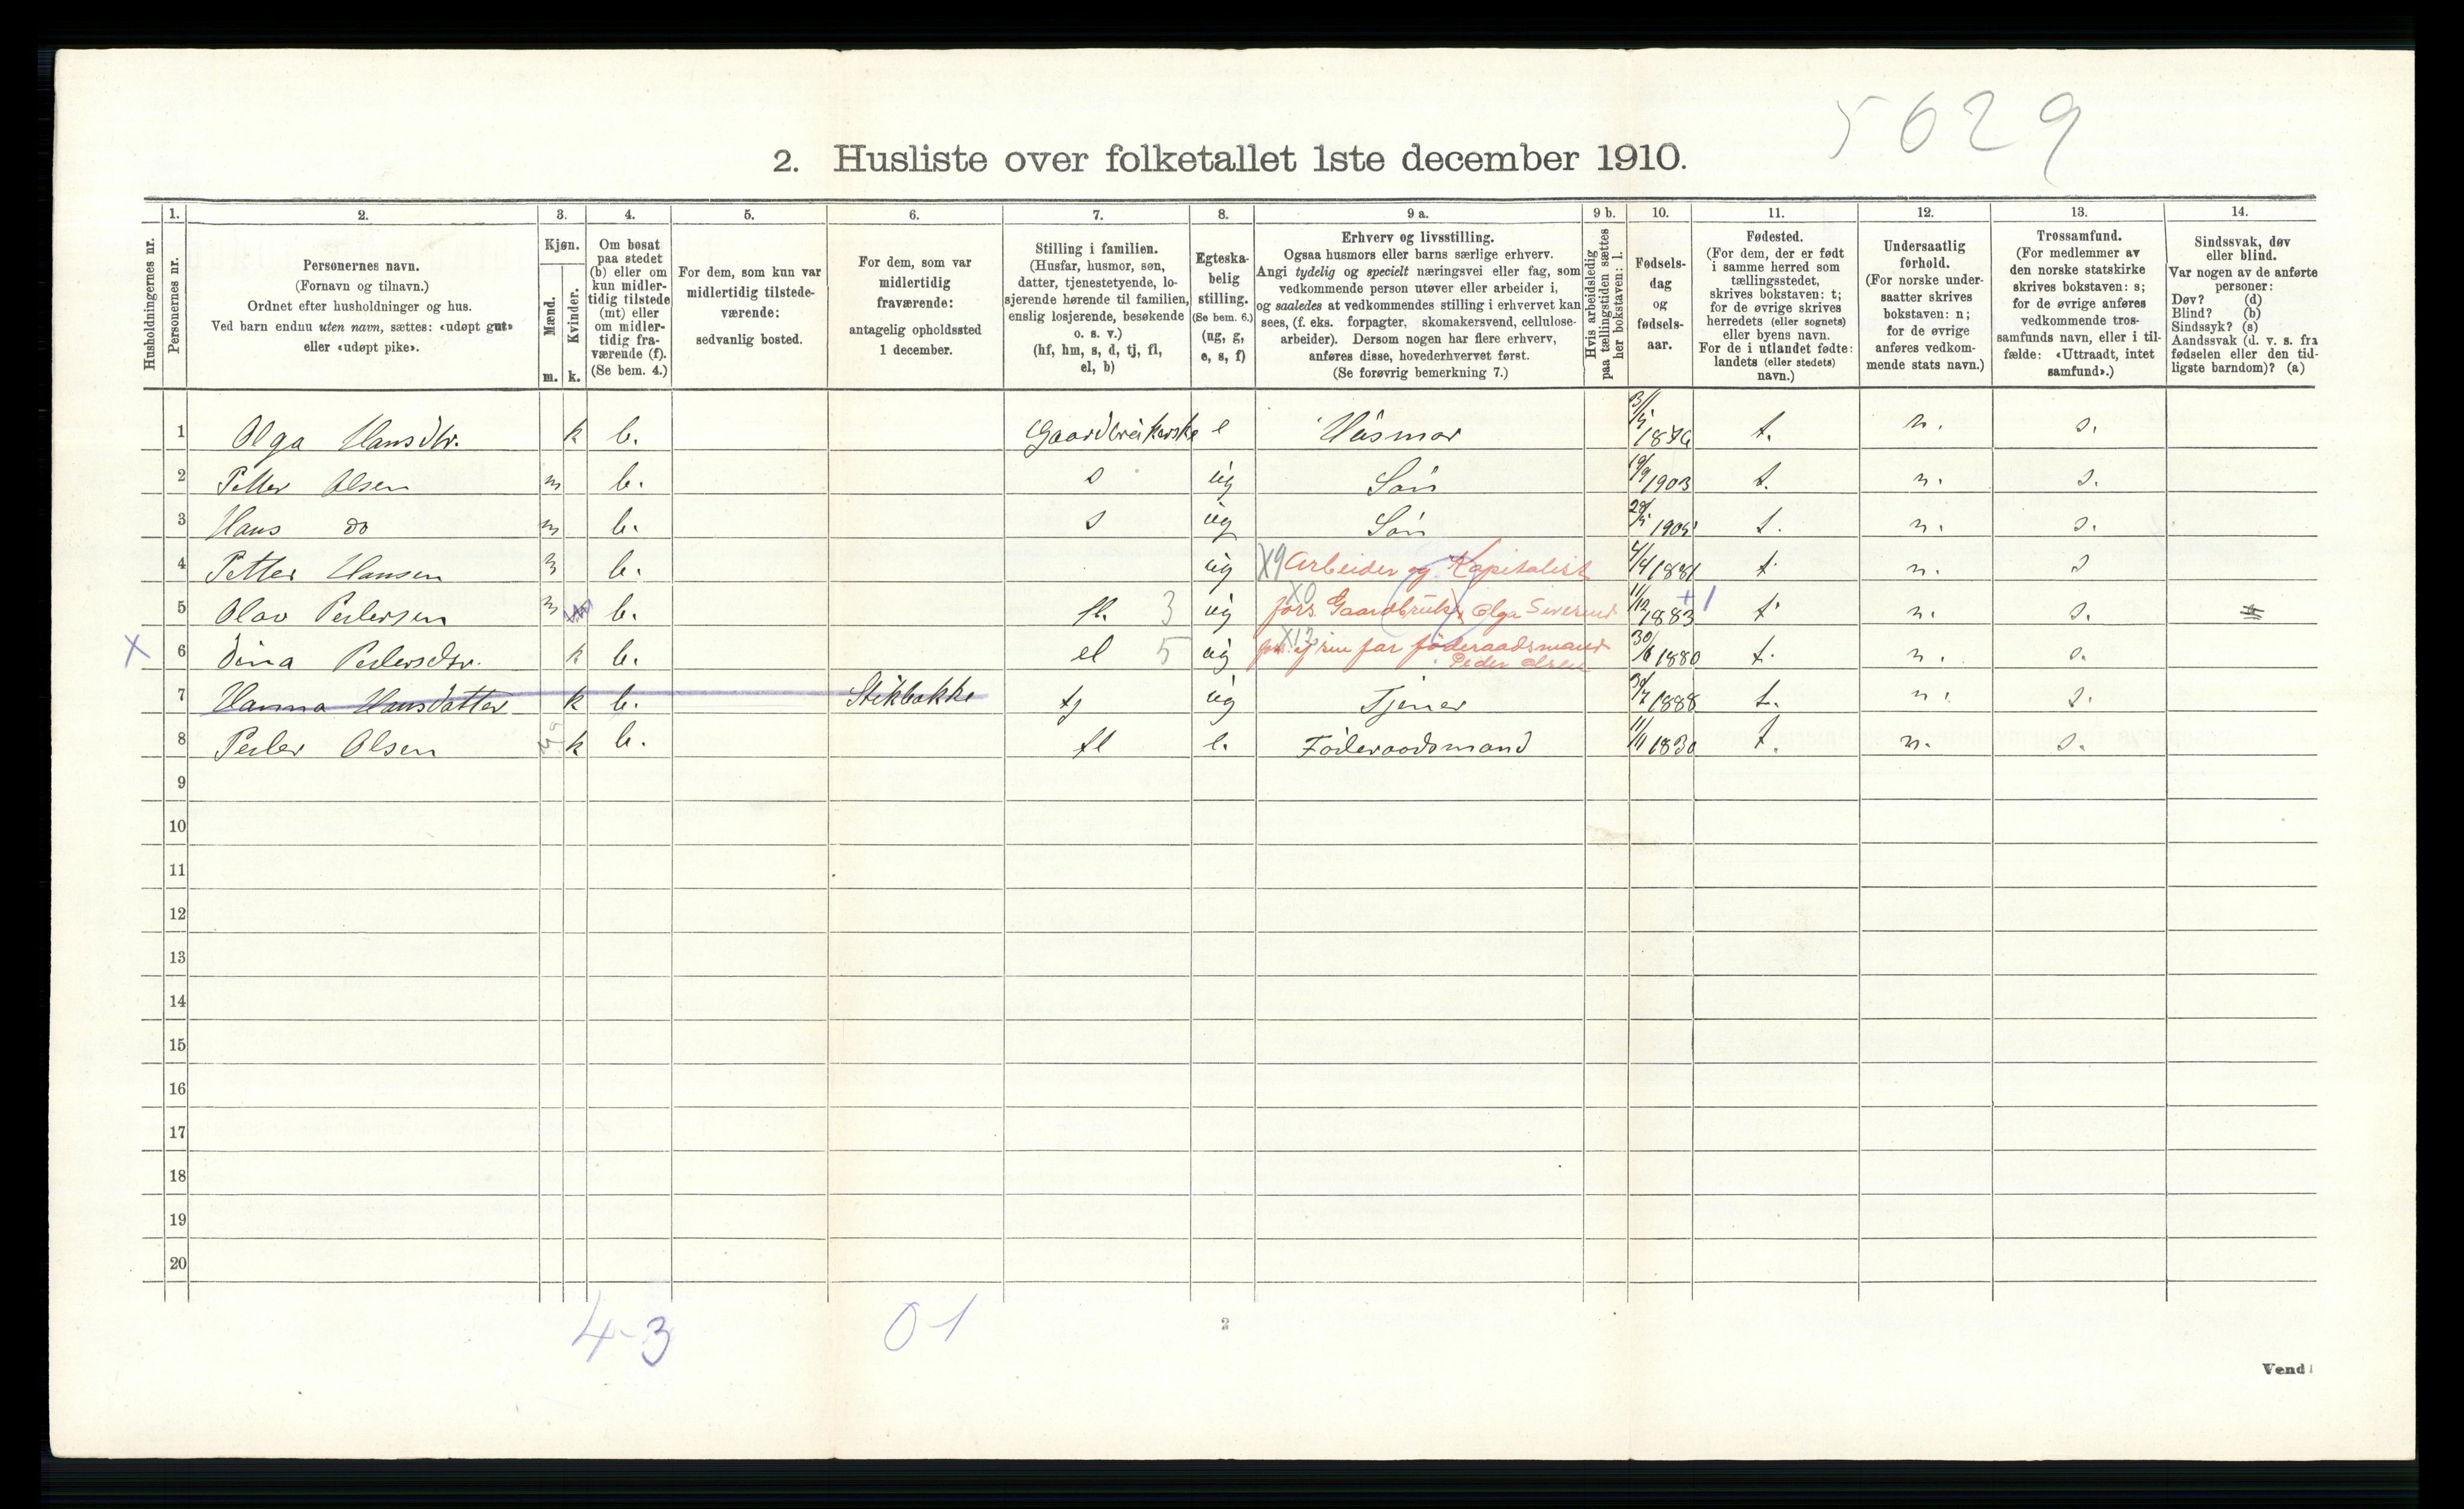 5629
2. Husliste over folketallet 1ste december 1910.
1. 2. 3. 4. 5. 6. 7. 8. 9 a. 9 b. 10. 11. 12. 13. 14.
Husholdningernes nr.
Personernes nr.
Personernes navn.
(Fornavn og tilnavn.)
Ordnet efter husholdninger og hus.
Ved barn endnu uten navn, sættes: «udøpt gut»
eller «udøpt pike».
Kjøn.
Mænd.
Kvinder.
m. k.
Om bosat
paa stedet
(b) eller om
kun midler-
tidig tilstede
(mt) eller
om midler-
tidig fra-
værende (f).
(Se bem. 4.)
For dem, som kun var
midlertidig tilstede-
værende:
sedvanlig bosted.
For dem, som var
midlertidig
fraværende:
antagelig opholdssted
1 december.
Stilling i familien.
(Husfar, husmor, søn,
datter, tjenestetyende, lo-
sjerende hørende til familien,
enslig losjerende, besøkende
o. s. v.)
(hf, hm, s, d, tj, fl,
el, b)
Egteska-
belig
stilling.
(Se bem. 6.)
(ug, g,
e, s, f)
Erhverv og livsstilling.
Ogsaa husmors eller barns særlige erhverv.
Angi tydelig og specielt næringsvei eller fag, som
vedkommende person utøver eller arbeider i,
og saaledes at vedkommendes stilling i erhvervet kan
sees, (f. eks. forpagter, skomakersvend, cellulose-
arbeider). Dersom nogen har flere erhverv,
anføres disse, hovederhvervet først.
(Se forøvrig bemerkning 7.)
Hvis arbeidsledig
paa tællingstiden sættes
her bokstaven: l.
Fødsels-
dag
og
fødsels-
aar.
Fødested.
(For dem, der er født
i samme herred som
tællingsstedet,
skrives bokstaven: t;
for de øvrige skrives
herredets (eller sognets)
eller byens navn.
For de i utlandet fødte:
landets (eller stedets)
navn.)
Undersaatlig
forhold.
(For norske under-
saatter skrives
bokstaven: n;
for de øvrige
anføres vedkom-
mende stats navn.)
Trossamfund.
(For medlemmer av
den norske statskirke
skrives bokstaven: s;
for de øvrige anføres
vedkommende tros-
samfunds navn, eller i til-
fælde: «Uttraadt, intet
samfund».)
Sindssvak, døv
eller blind.
Var nogen av de anførte
personer:
Døv? (d)
Blind? (b)
Sindssyk? (s)
Aandssvak (d. v. s. fra
fødselen eller den tid-
ligste barndom)? (a)
1 Olga Hansdtr. k b. Gaardbrükerske e Hüsmor t. n. s.
2 Petter Olsen m b. s üg Søn 19/9 1903 t. n. s.
3 Hans do m b. s üg Søn t. n. s.
4 Petter Hansen m b. üg X9 Arbeider og Kapitalist 4/4 1881 t n. s
5 Olav Pedersen m b. fl. 3 üg X0 fors. Gaardbrüker Olga 11/12 1883 +1 t n. s.
X 6 Dina Pedersdtr. k b. el 5 üg X12 fors. af sin far föderaadsmand Peder Olsen 30/6 1880 t. n. s.
7 Hanna Hansdatter k b. Stikbakke tj üg Tjener 1888 t. n. s.
8 Peder Olsen k b. fl e. Föderaadsmand 11/11 1830 t. n. s.
9
10
11
12
13
14
15
16
17
18
19
20
4-3 0-1
2
Vend!